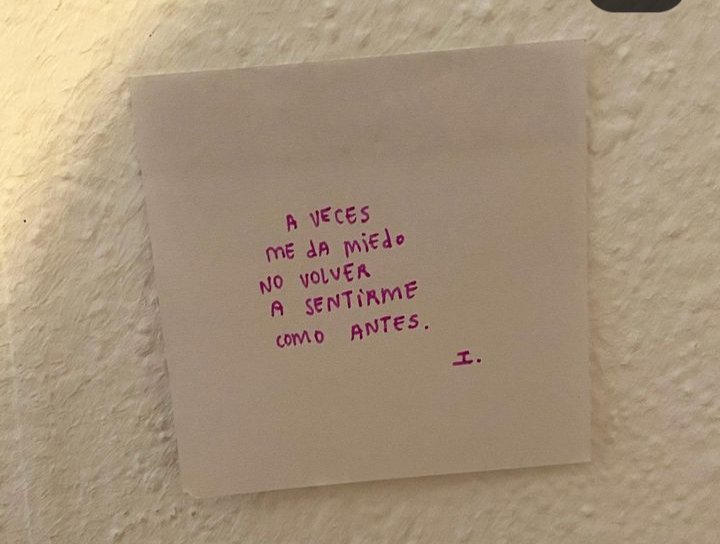 A VECES
ME dA MiEdo
NO VOLVER
A SENTiRME
COMO ANTES.
I.